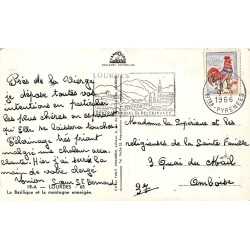 Près de la Vierge
je dépose toutes vos
intentions en particulier
les plus chères en espérant
qu'Elle se laissera toucher.
Pèlerinage très fervent
malgré une chaleur acca-
blante. Hier j'ai serré la
main de votre cher
Sœur St Bernard
18-A — LOURDES
La Basilique et la montagne enneigée.
LOURDES
1966
PYRENEES
Madame la Supérieure et les
religieuses de la Sainte Famille
3 Quai du Mail
37
Amboise